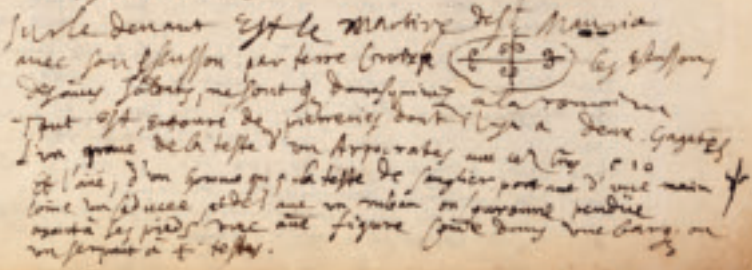 sur le devant Est le martire de St Mauris
avec son Escusson par terre les Escussons
des aues soldats, ne sont q damasquinez a la romaine
Tout Est Entouré de pierreries dont il y a deux Gagates
L'un gravé de la teste d'un Arpocrates avec ces
Et l'aue, d'un home qui a la teste de sanglier portant d'une main
come un et de l'aue un ruban ou couronne pendue
les pieds une aue figure dans une barq. ou
un serpant a testes.